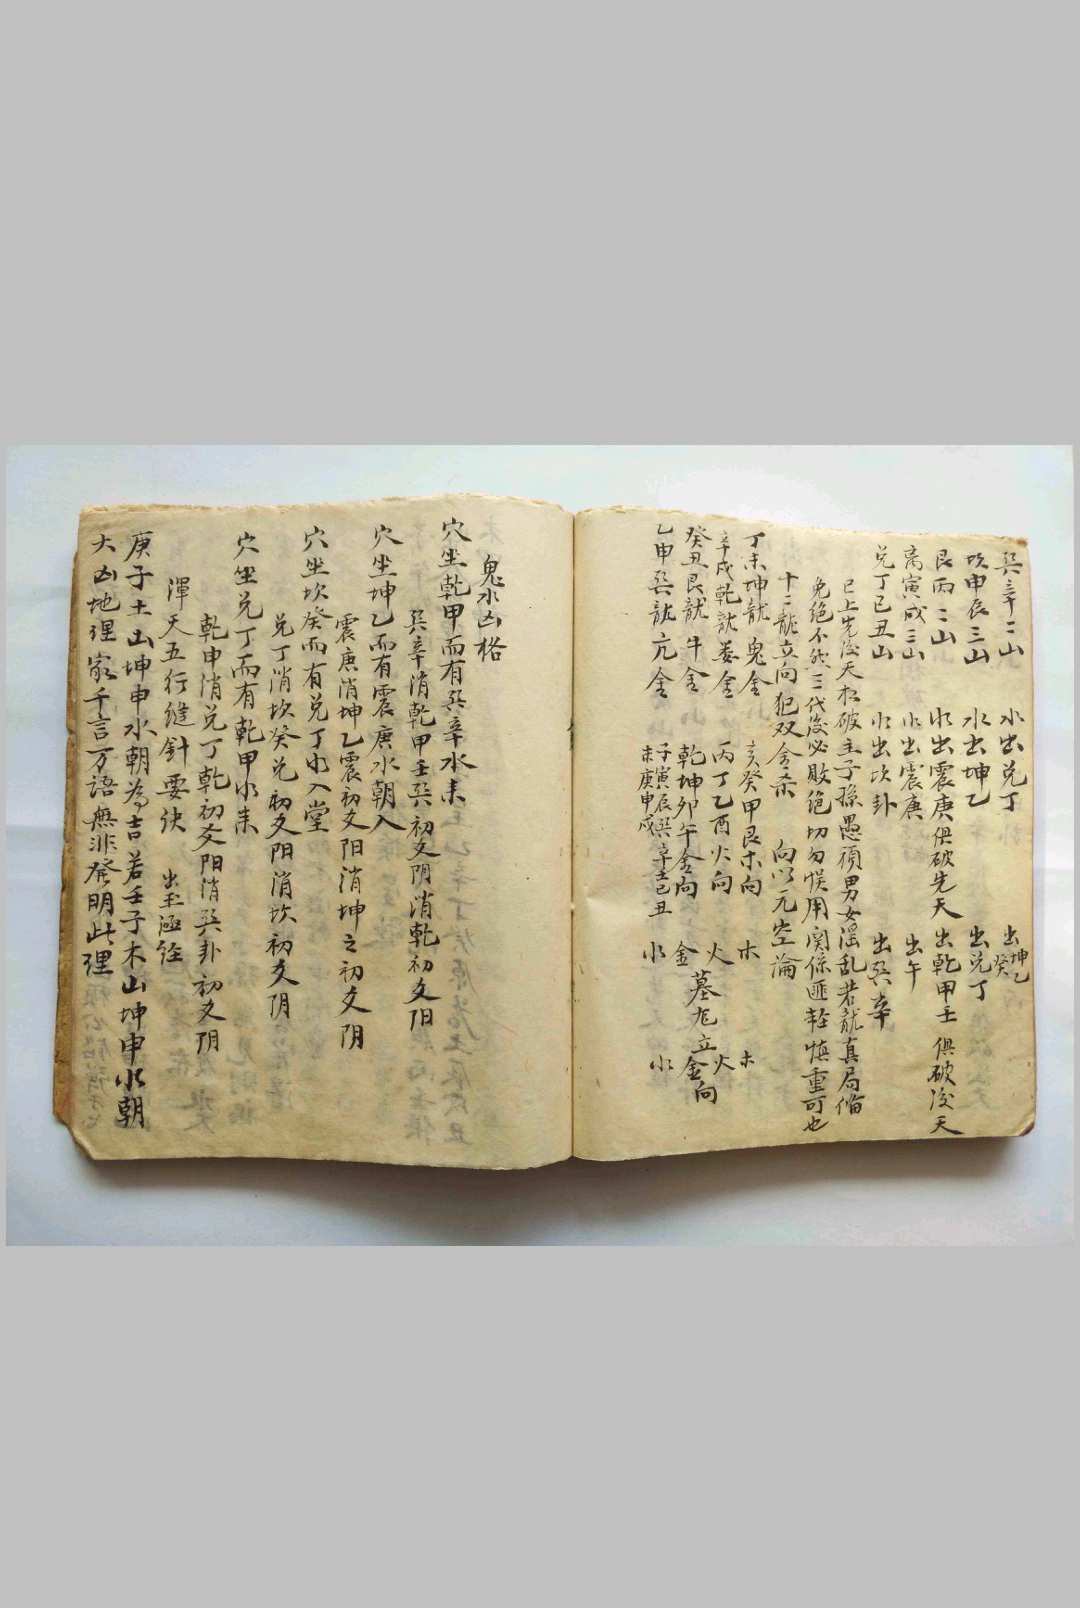 巽辛二山　水出兑丁　出坤乙癸
坎申辰三山　水出坤乙　出兑丁
艮丙二山　水出震庚俱破先天　出乾甲壬　俱破后天
离寅戌三山　水出震庚　出午
兑丁巳丑山　水出坎卦　出巽辛
已上先后天相破主子孫愚頑男女淫乱若龍真局俻
免絶不然三代後必敗絶切勿悮用関係匪輊慎重可也
十二龍立向犯双金杀　向以元空論
丁未坤龍　鬼金　亥癸甲艮木向　木　木
辛戌乾龍　娄金　丙丁乙酉火向　火　火
癸丑艮龍　牛金　乾坤卯午金向　金　墓龙立金向
乙申巽龍　亢金　子寅辰巽辛壬巳丑　水　水
未庚申戌
鬼水凶格
穴坐乾甲而有巽辛水来
巽辛消乾甲壬巽初爻阴消乾初爻阳
穴坐坤乙而有震庚水朝入
震庚消坤乙震初爻阳消坤之初爻阴
穴坐坎癸而有兑丁水入堂
兑丁消坎癸兑初爻阳消坎初爻阴
穴坐兑丁而有乾甲水来
乾甲消兑丁乾初爻阳消巽卦初爻阴
渾天五行縫針要訣　出玉函经
庚子土山坤申水朝為吉若壬子木山坤申水朝
大凶地理家千言万語無非發明此理